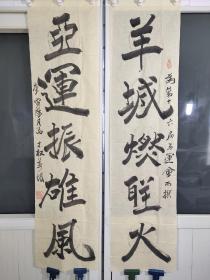 羊城燃聖火
為第十六屆亞運會而撰
亞運振雄風